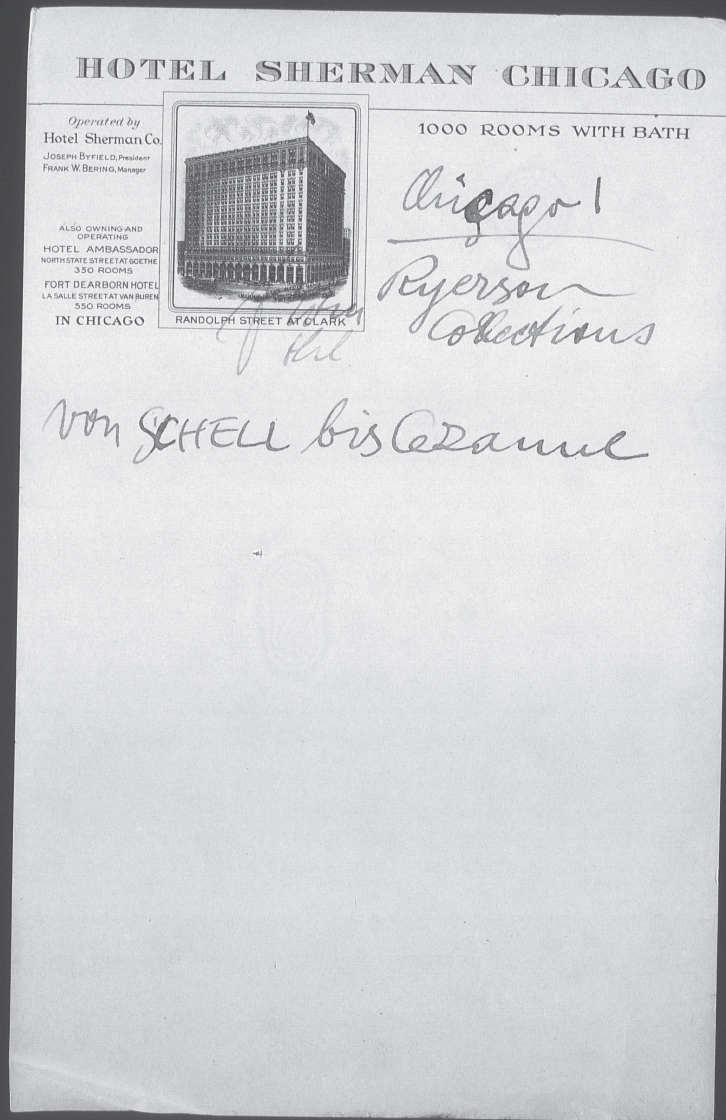 HOTEL SHERMAN CHICAGO
Operated by
Hotel Sherman Co.
JOSEPH BYFIELD, President
FRANK W. BERING, Manager
ALSO OWNING AND
OPERATING
HOTEL AMBASSADOR
NORTH STATE STREET AT GOETHE
350 ROOMS
FORT DEARBORN HOTEL
LA SALLE STREET AT VAN BUREN
550 ROOMS
IN CHICAGO
RANDOLPH STREET AT CLARK
1000 ROOMS WITH BATH
Chicago 1
Ryerson
Collections
von SCHELL bis Cezanne